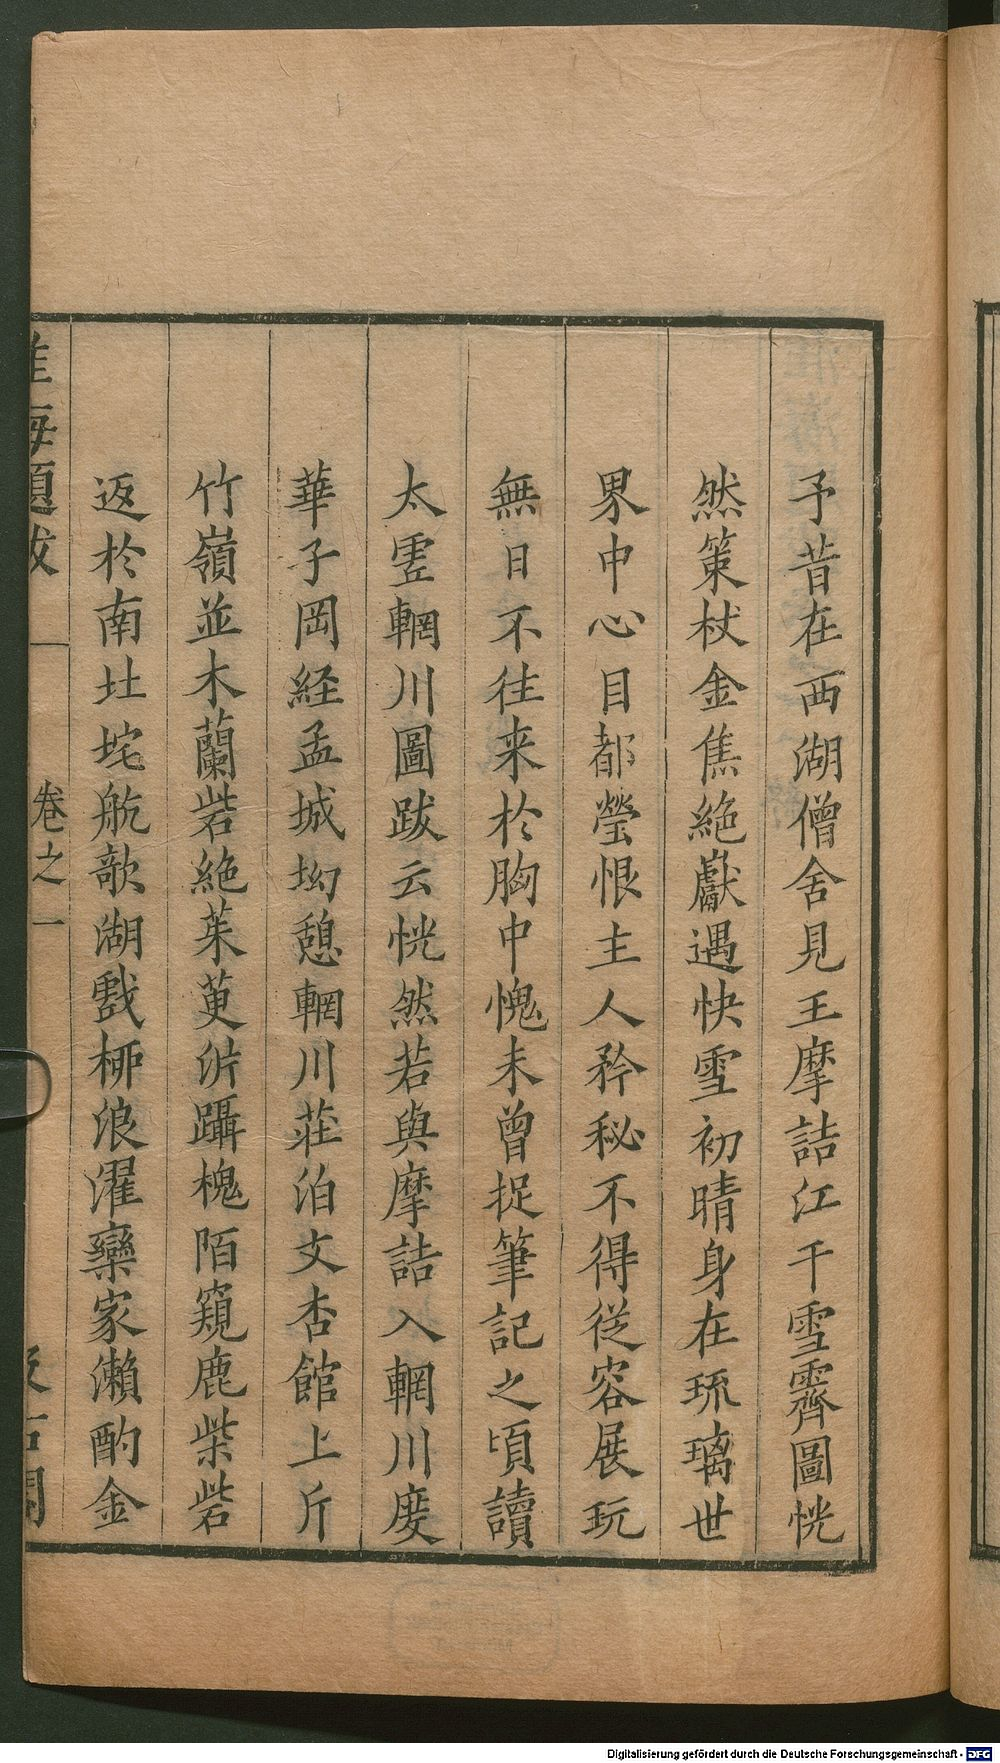 予昔在西湖僧舍見王摩詰江干雪霽圖恍
然策杖金焦絶巘遇快雪初晴身在琉璃世
界中心目都瑩恨主人矜秘不得從容展玩
無日不往来於胸中愧未曾捉筆記之頃讀
太虛輞川圖跋云恍然若與摩詰入輞川度
華子岡経孟城坳憩輞川莊泊文杏館上斤
竹嶺並木蘭砦絶茱萸沜躡槐陌窺鹿柴砦
返於南北垞航欹湖戲栁浪濯欒家瀨酌金
淮海題跋
卷之一
Digitalisierung gefördert durch die Deutsche Forschungsgemeinschaft - DFG